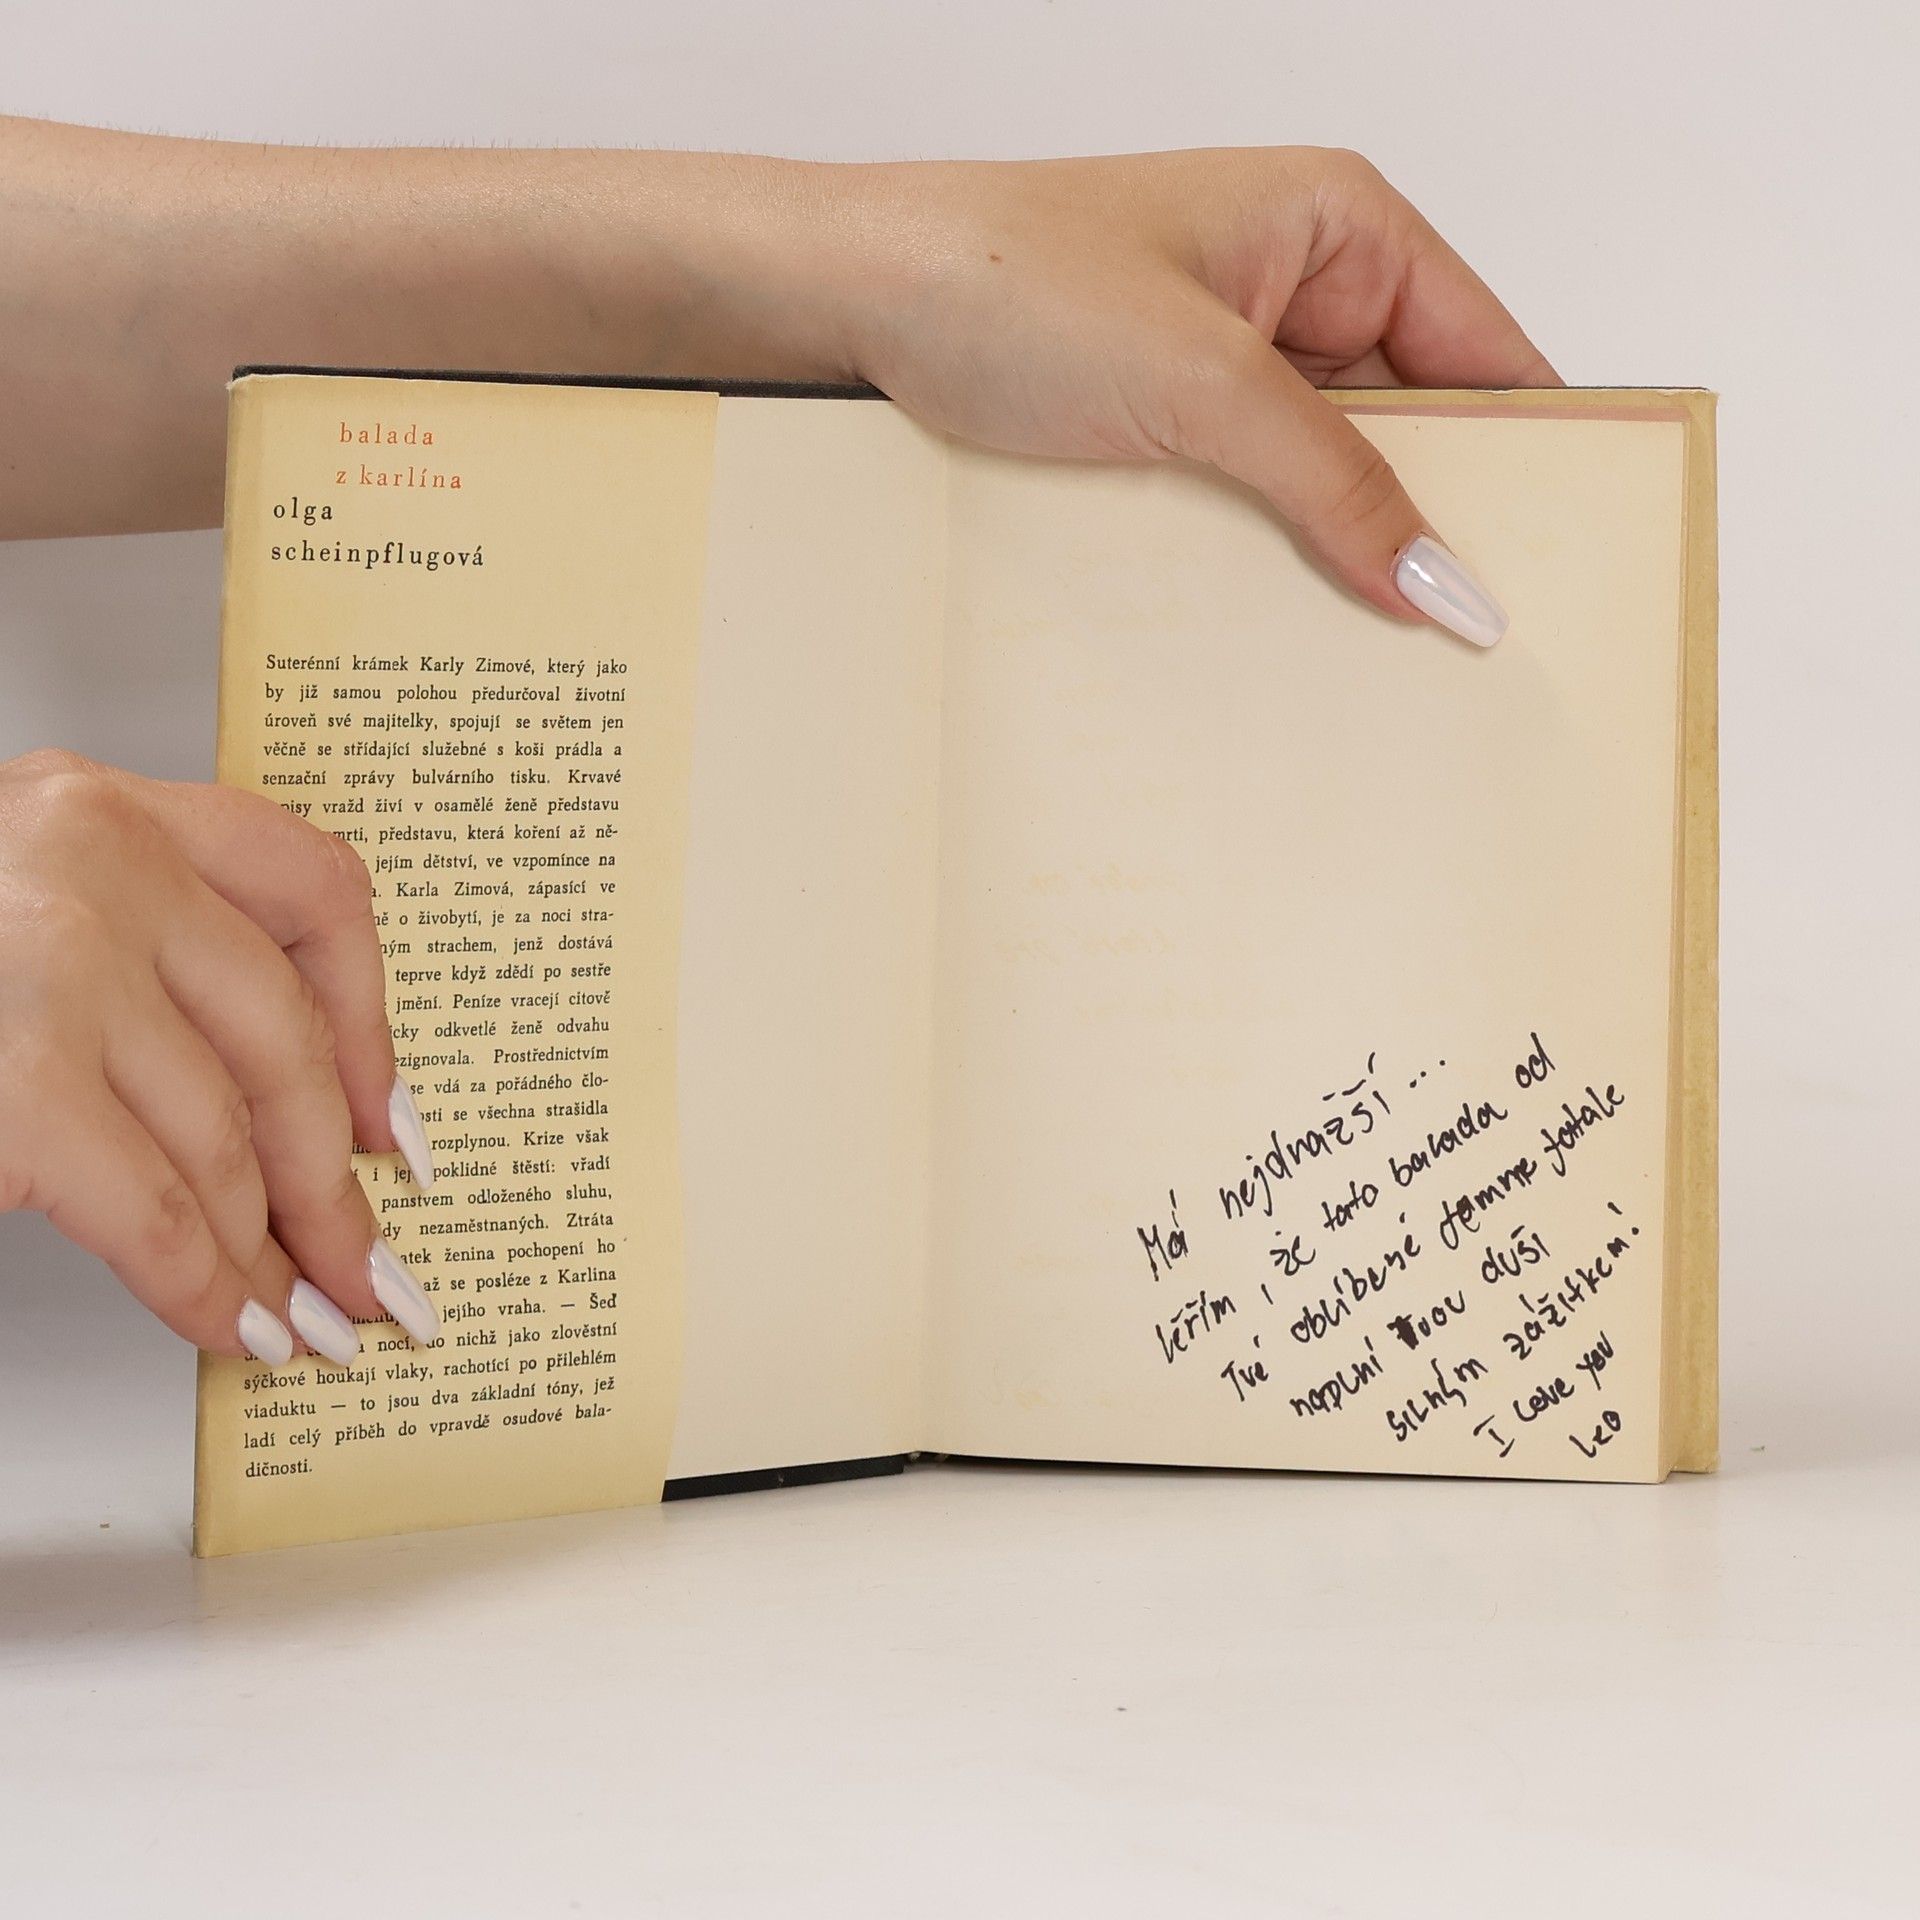 balada
z karlína
olga
scheinpflugová
Suterénní krámek Karly Zimové, který jako
by již samou polohou předurčoval životní
úroveň své majitelky, spojují se světem jen
věčně se střídající služebné s koši prádla a
senzační zprávy bulvárního tisku. Krvavé
vražd živí v osamělé ženě představu
představu, která koření až ně-
jejím dětství, ve vzpomínce na
Karla Zimová, zápasící ve
o živobytí, je za noci stra-
strachem, jenž dostává
teprve když zdědí po sestře
jmění. Peníze vracejí citově
odkvetlé ženě odvahu
Prostřednictvím
se vdá za pořádného člo-
se všechna strašidla
rozplynou. Krize však
i poklidné štěstí: vřadí
panstvem odloženého sluhu,
nezaměstnaných. Ztráta
ženina pochopení ho
až se posléze z Karlina
jejího vraha. — Šeď
nocí, do nichž jako zlověstní
sýčkové houkají vlaky, rachotící po přilehlém
viaduktu — to jsou dva základní tóny, jež
ladí celý příběh do vpravdě osudové bala-
dičnosti.
Má nejdražší ...
věřím, že tato balada od
Tvé oblíbené femme fatale
naplní Tvou duši
silným zážitkem!
I love you
Leo